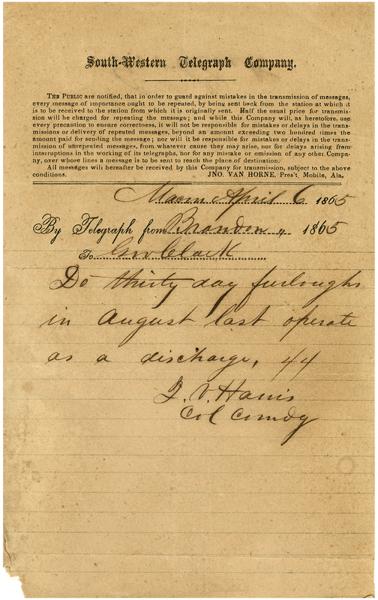 South-Western Telegraph Company.
THE PUBLIC are notified, that in order to guard against mistakes in the transmission of messages,
every message of importance ought to be repeated, by being sent back from the station at which it
is to be received to the station from which it is originally sent. Half the usual price for transmis-
sion will be charged for repeating the message; and while this Company will, as heretofore, use
every precaution to ensure correctness, it will not be responsible for mistakes or delays in the trans-
missions or delivery of repeated messages, beyond an amount exceeding two hundred times the
amount paid for sending the message; nor will it be responsible for mistakes or delays in the trans-
mission of unrepeated messages, from whatever cause they may arise, nor for delays arising from
interruptions in the working of its telegraphs, nor for any mistake or omission of any other Compa-
ny, over whose lines a message is to be sent to reach the place of destination.
All messages will hereafter be received by this Company for transmission, subject to the above
conditions. JNO. VAN HORNE, Pres't, Mobile, Ala.
Macon April 6 1865
By Telegraph from Brandon 1865
To Gov Clark
Do thirty day furloughs
in August last operate
as a discharge, 44
T. V. Harris
Col Comdg